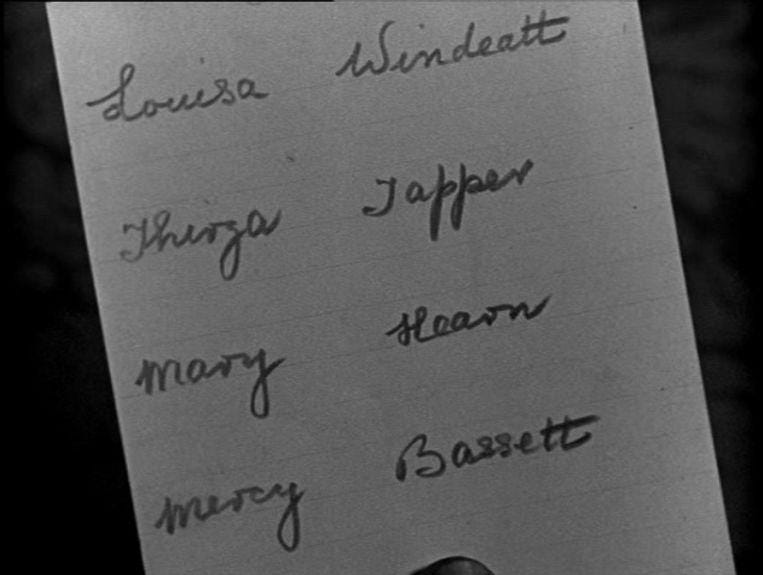 Louisa Windeatt
Thirza Tapper
Mary Hearn
Mercy Bassett